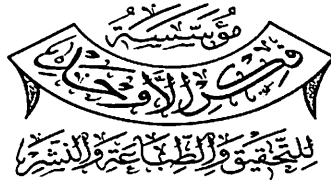 مُؤسَّسَة
فِكْرُ الأَوْحَد
لِلتَّحْقِيقِ وَالطِّبَاعَةِ وَالنَّشْرِ